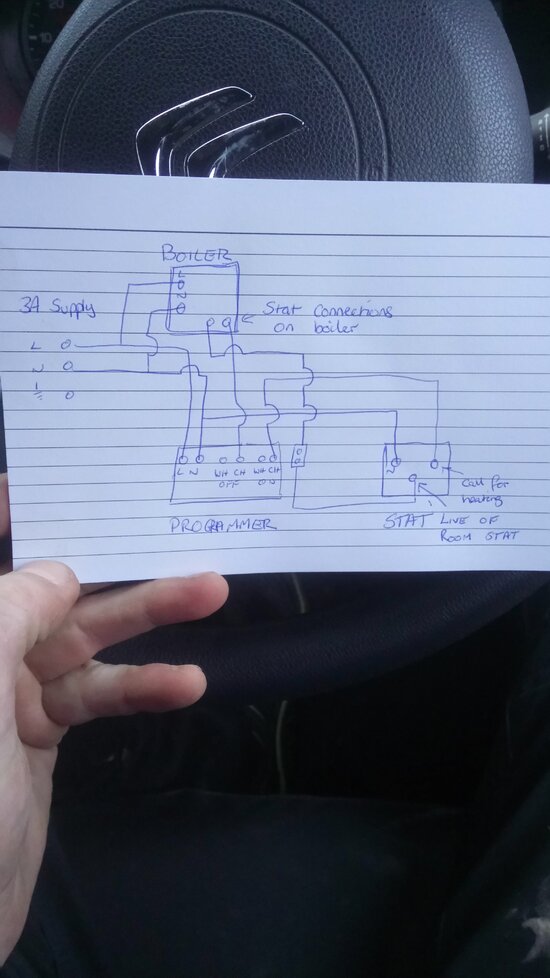 BOILER
L
N
3A Supply
Stat connections
on boiler
L
N
L N WH CH WH CH
OFF ON
N
call for
heating
PROGRAMMER
STAT LIVE OF
ROOM STAT
20